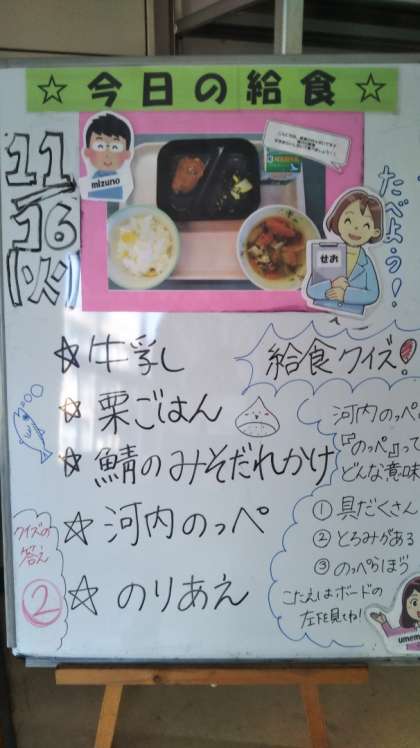 ☆今日の給食☆
11/16(火)
mizuno
せお
たべよう!
☆牛乳
☆栗ごはん
☆鯖のみそだれかけ
☆河内のっぺ
☆のりあえ
給食クイズ!
河内のっぺ
『のっぺ』って
どんな意味
① 具だくさん
② とろみがある
③ のっぺらぼう
こたえはボードの
左下を見てね!
umem
クイズの
答え
②